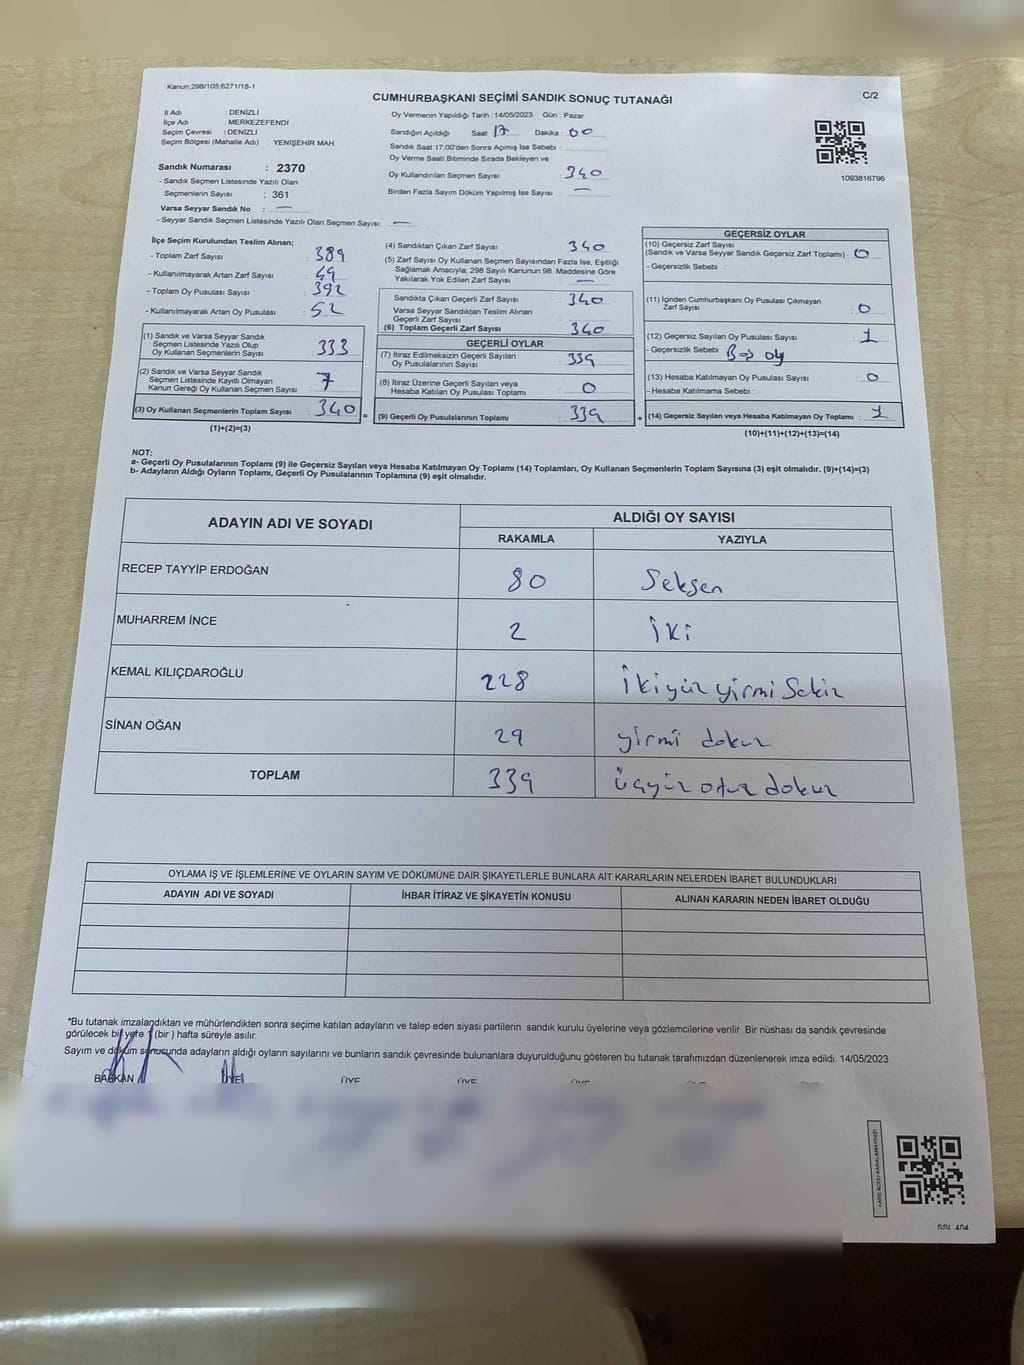 Kanun;298/105;6271/18-1
C/2
CUMHURBAŞKANI SEÇİMİ SANDIK SONUÇ TUTANAĞI
İl Adı : DENİZLİ
İlçe Adı : MERKEZEFENDİ
Seçim Çevresi : DENİZLİ
Seçim Bölgesi (Mahalle Adı) : YENİŞEHİR MAH.
Sandık Numarası : 2370
- Sandık Seçmen Listesinde Yazılı Olan
Seçmenlerin Sayısı : 361
Varsa Seyyar Sandık No : —
- Seyyar Sandık Seçmen Listesinde Yazılı Olan Seçmen Sayısı : —
Oy Vermenin Yapıldığı Tarih : 14/05/2023 Gün : Pazar
Sandığın Açıldığı Saat 17 Dakika : 00
Sandık Saat 17:00'den Sonra Açımış İse Sebebi :
Oy Verme Saati Bitiminde Sırada Bekleyen ve
Oy Kullandırılan Seçmen Sayısı : 340
Birden Fazla Sayım Döküm Yapılmış İse Sayısı : —
1093816796
İlçe Seçim Kurulundan Teslim Alınan;
- Toplam Zarf Sayısı : 389
- Kullanılmayarak Artan Zarf Sayısı : 49
- Toplam Oy Pusulası Sayısı : 392
- Kullanılmayarak Artan Oy Pusulası : 52
(1) Sandık ve Varsa Seyyar Sandık
Seçmen Listesinde Yazılı Olup
Oy Kullanan Seçmenlerin Sayısı : 333
(2) Sandık ve Varsa Seyyar Sandık
Seçmen Listesinde Kayıtlı Olmayan
Kanun Gereği Oy Kullanan Seçmen Sayısı : 7
(3) Oy Kullanan Seçmenlerin Toplam Sayısı : 340 =
(1)+(2)=(3)
(4) Sandıktan Çıkan Zarf Sayısı : 340
(5) Zarf Sayısı Oy Kullanan Seçmen Sayısından Fazla İse, Eşitliği
Sağlamak Amacıyla; 298 Sayılı Kanunun 98. Maddesine Göre
Yakılarak Yok Edilen Zarf Sayısı : —
Sandıkta Çıkan Geçerli Zarf Sayısı : 340
Varsa Seyyar Sandıktan Teslim Alınan
Geçerli Zarf Sayısı :
(6) Toplam Geçerli Zarf Sayısı : 340
GEÇERLİ OYLAR
(7) İtiraz Edilmeksizin Geçerli Sayılan
Oy Pusulalarının Sayısı : 339
(8) İtiraz Üzerine Geçerli Sayılan veya
Hesaba Katılan Oy Pusulası Toplamı : 0
(9) Geçerli Oy Pusulalarının Toplamı : 339 +
GEÇERSİZ OYLAR
(10) Geçersiz Zarf Sayısı
(Sandık ve Varsa Seyyar Sandık Geçersiz Zarf Toplamı) : 0
- Geçersizlik Sebebi :
(11) İçinden Cumhurbaşkanı Oy Pusulası Çıkmayan
Zarf Sayısı : 0
(12) Geçersiz Sayılan Oy Pusulası Sayısı : 1
- Geçersizlik Sebebi : oy
(13) Hesaba Katılmayan Oy Pusulası Sayısı : 0
- Hesaba Katılmama Sebebi :
(14) Geçersiz Sayılan veya Hesaba Katılmayan Oy Toplamı : 1
(10)+(11)+(12)+(13)=(14)
NOT:
a- Geçerli Oy Pusulalarının Toplamı (9) ile Geçersiz Sayılan veya Hesaba Katılmayan Oy Toplamı (14) Toplamları, Oy Kullanan Seçmenlerin Toplam Sayısına (3) eşit olmalıdır. (9)+(14)=(3)
b- Adayların Aldığı Oyların Toplamı, Geçerli Oy Pusulalarının Toplamına (9) eşit olmalıdır.
ADAYIN ADI VE SOYADI ALDIĞI OY SAYISI
RAKAMLA YAZIYLA
RECEP TAYYİP ERDOĞAN 80 Seksen
MUHARREM İNCE 2 İki
KEMAL KILIÇDAROĞLU 228 İkiyüz yirmi Sekiz
SİNAN OĞAN 29 yirmi dokuz
TOPLAM 339 üçyüz otuz dokuz
OYLAMA İŞ VE İŞLEMLERİNE VE OYLARIN SAYIM VE DÖKÜMÜNE DAİR ŞİKAYETLERLE BUNLARA AİT KARARLARIN NELERDEN İBARET BULUNDUKLARI
ADAYIN ADI VE SOYADI İHBAR İTİRAZ VE ŞİKAYETİN KONUSU ALINAN KARARIN NEDEN İBARET OLDUĞU
*Bu tutanak imzalandıktan ve mühürlendikten sonra seçime katılan adayların ve talep eden siyasi partilerin sandık kurulu üyelerine veya gözlemcilerine verilir .Bir nüshası da sandık çevresinde
görülecek bir yere 1 (bir ) hafta süreyle asılır.
Sayım ve döküm sonucunda adayların aldığı oyların sayılarını ve bunların sandık çevresinde bulunanlara duyurulduğunu gösteren bu tutanak tarafımızdan düzenlenerek imza edildi. 14/05/2023
BAŞKAN ÜYE ÜYE ÜYE ÜYE